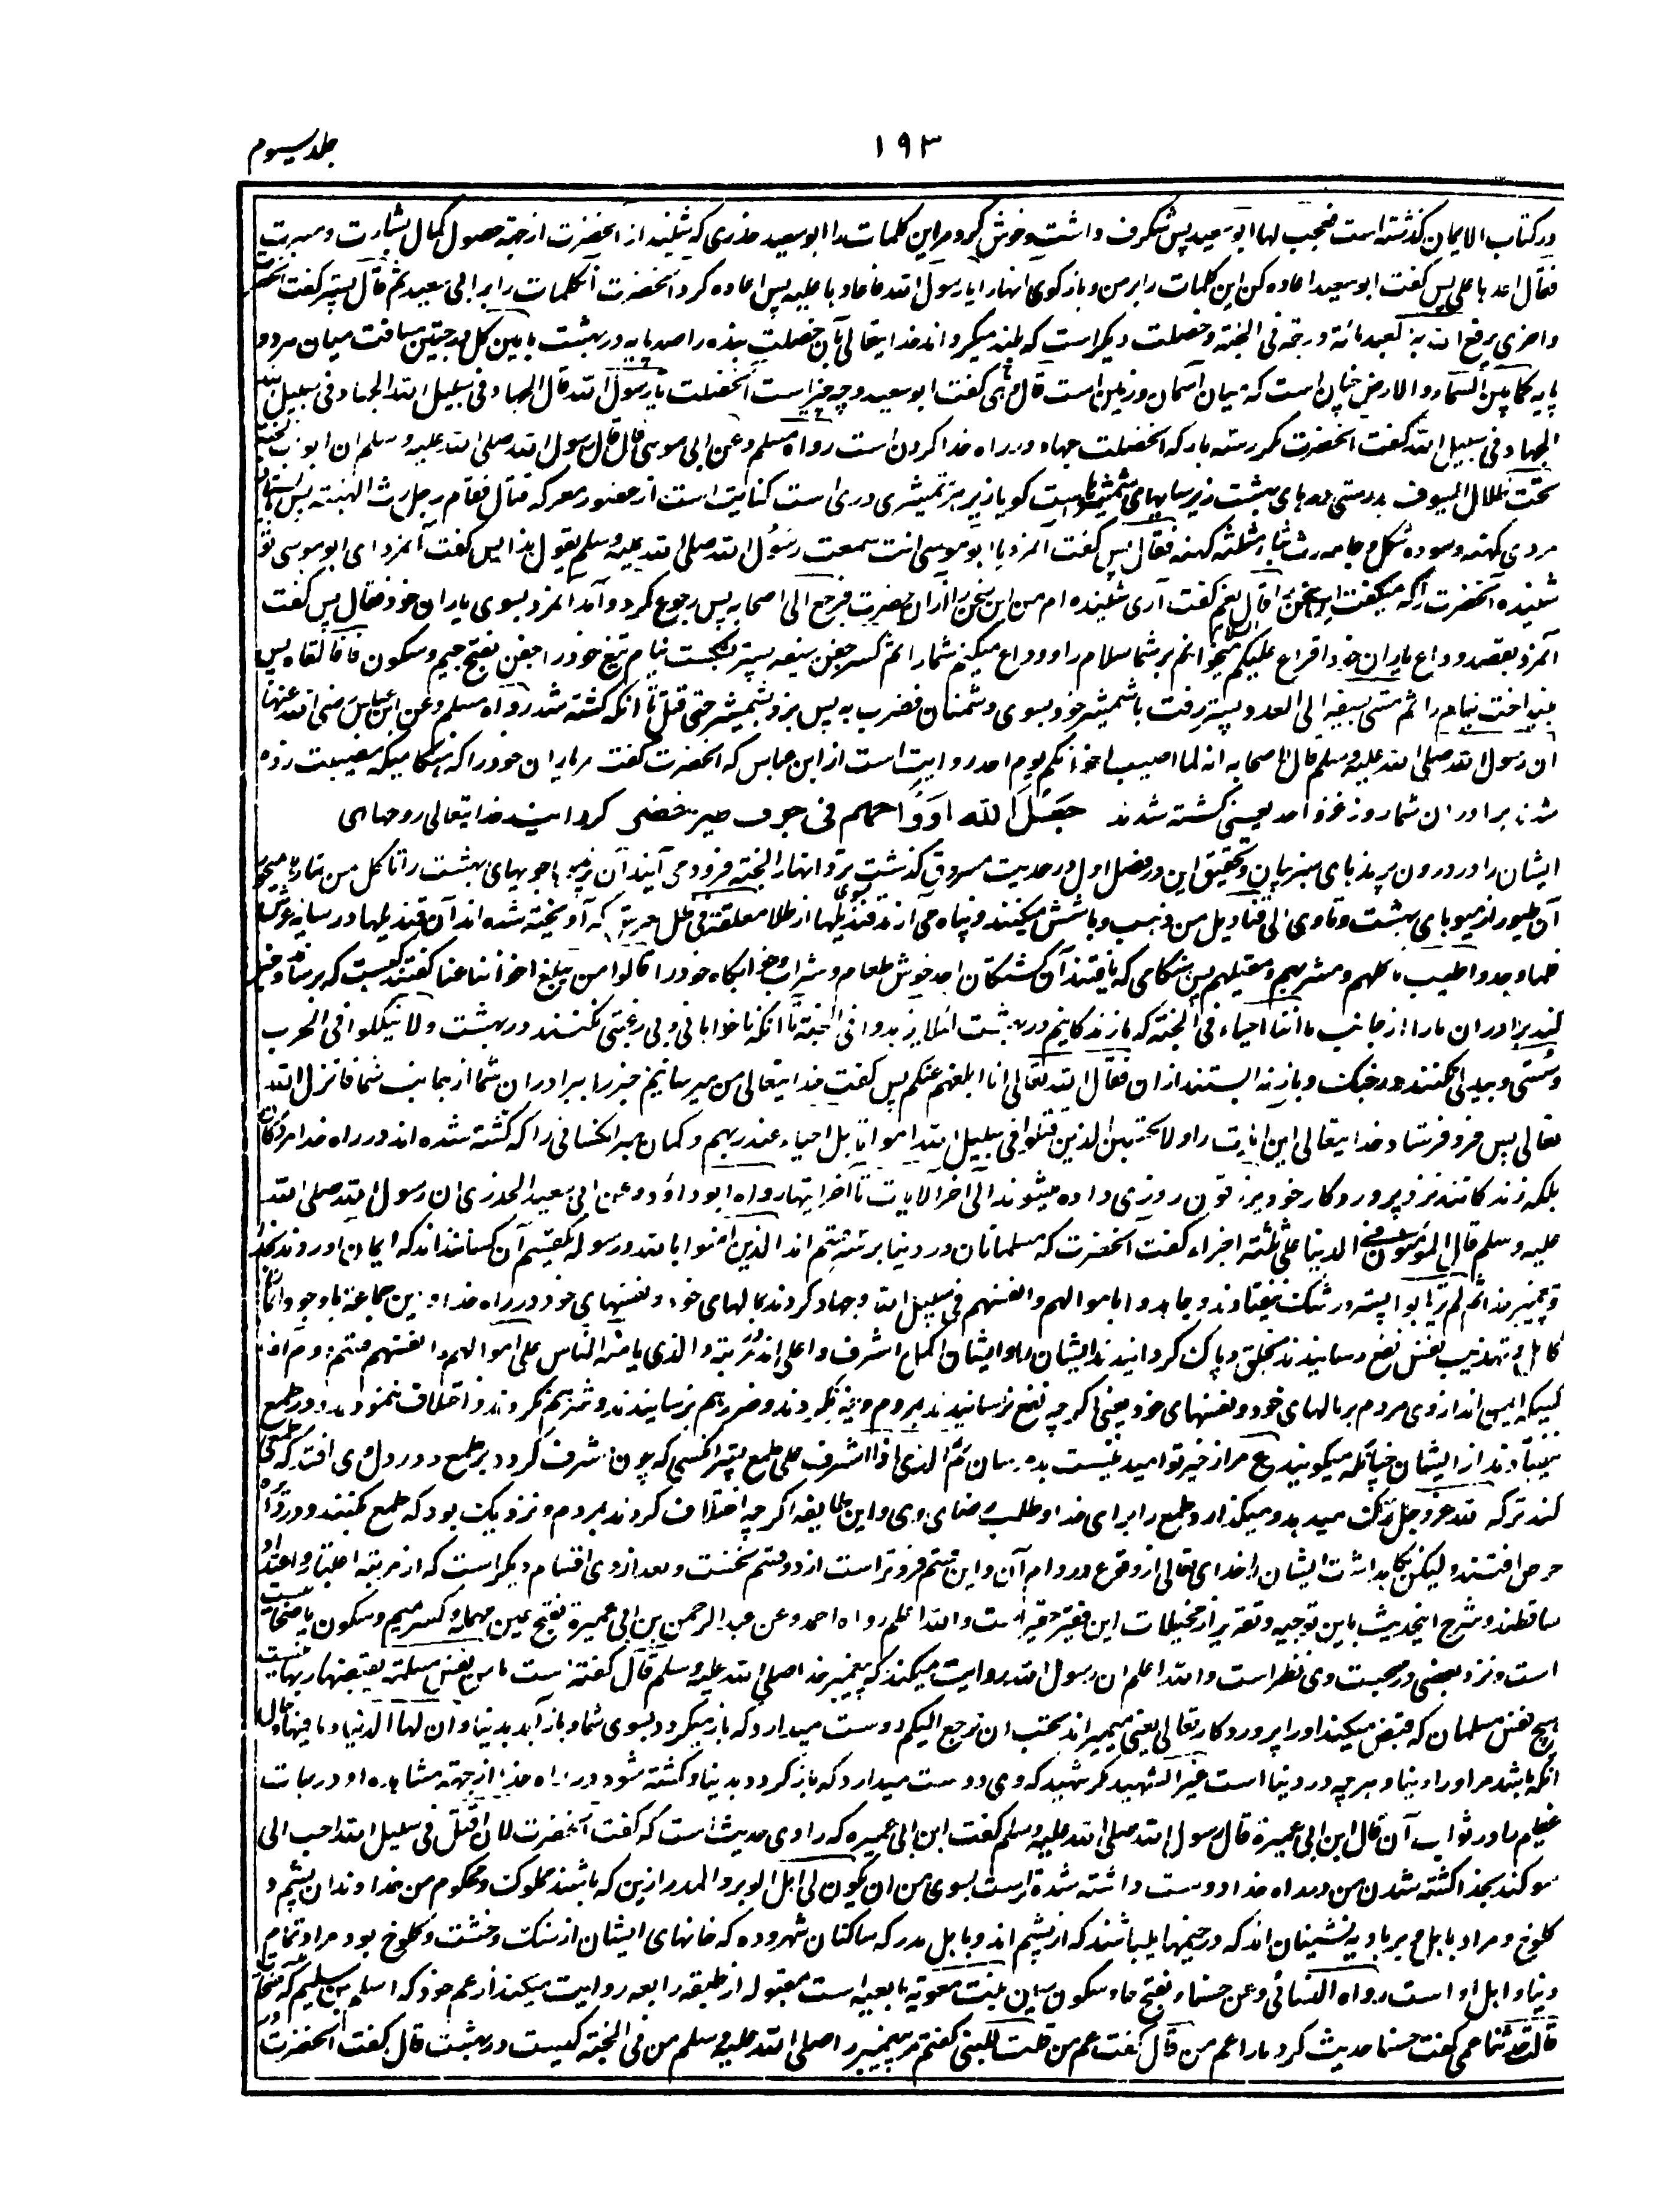 ۱۹۳
جلد سیوم
در کتاب الایمان گذشته است فعجب لها ابو سعید پس شگرف داشت و خوش کرد مر این کلمات را ابو سعید خدری که شنید از آنحضرت از جهة حصول کمال بشارت و مسرت
فقال اعدها علی پس گفت ابو سعید اعاده کن این کلمات را بر من و بازگوی انها را یا رسول الله فاعادها علیه پس اعاده کرد آنحضرت آنکلمات را بر ابی سعید ثم قال پستر گفت آنحضرت
واخری یرفع الله بها العبد مائة درجة فی الجنة و خصلت دیگر است که بلند میگرداند خدایتعالی بآن خصلت بنده را صد پایه در بهشت ما بین کل درجتین مسافت میان هر دو
پایه کما بین السماء والارض چنان است که میان آسمان و زمین است قال و ما هی گفت ابو سعید و چه چیز است آنخصلت یا رسول الله قال الجهاد فی سبیل الله الجهاد فی سبیل الله
الجهاد فی سبیل الله گفت آنحضرت مکرر سه بار که آنخصلت جهاد در راه خدا کردن است رواه مسلم وعن ابی موسی قال قال رسول الله صلی الله علیه وسلم ان ابواب الجنة
تحت ظلال السیوف بدرستی درهای بهشت زیر سایهای شمشیرهاست گویا زیر هر شمشیری دری است کنایت است از حضور معرکه قتال فقام رجل رث الهیئة پس بایستاد
مردی کهنه و سوده شکل و جامه رث ثاء مثلثه کهنه فقال پس گفت آنمرد یا ابو موسی انت سمعت رسول الله صلی الله علیه وسلم یقول هذا پس گفت آنمرد ای ابو موسی تو
شنیده آنحضرت را که میگفت این سخن را قال نعم گفت آری شنیده ام من این سخن را از آن حضرت فرجع الی اصحابه پس رجوع کرد و آمد آنمرد بسوی یاران خود فقال پس گفت
آنمرد بقصد وداع یاران خود اقرأ علیکم السلام میخوانم بر شما سلام را و وداع میکنم شما را ثم کسر جفن سیفه پستر شکست نیام تیغ خود را جفن بفتح جیم و سکون فا فالقاه پس
بینداخت نیام را ثم مشی بسیفه الی العدو پستر رفت با شمشیر خود بسوی دشمنان فضرب به پس بزد بشمشیر حتی قتل تا آنکه کشته شد رواه مسلم وعن ابن عباس رضی الله عنهما
ان رسول الله صلی الله علیه وسلم قال لاصحابه انه لما اصیب اخوانکم یوم احد روایت است از ابن عباس که آنحضرت گفت مر یاران خود را که هنگامیکه مصیبت زده
شدند برادران شما روز غزو احد یعنی کشته شدند جعل الله ارواحهم فی جوف طیر خضر گردانید خدایتعالی روحهای
ایشان را در درون پرندهای سبز و بیان و تحقیق این در فصل اول در حدیث مسروق گذشت ترد انهار الجنة فرود می آیند آن طیور جویهای بهشت را تأکل من ثمارها میخورند
آن طیور از میوهای بهشت و تأوی الی قنادیل من ذهب و باشش میکنند و پناه می آرند بسوی قندیلها از طلا معلقة فی ظل العرش که آویخته شده اند آن قندیلها در سایه عرش
فلما وجدوا طیب مأکلهم و مشربهم و مقیلهم پس هنگامی که یافتند آن کشتگان احد خوش طعام و شراب و خوابگاه خود را قالوا من یبلغ اخواننا عنا گفتند کیست که برساند و خبر
کند برادران ما را از جانب ما اننا احیاء فی الجنة که ما زندگانیم در بهشت لئلا یزهدوا فی الجنة تا آنکه ناخواهانی و بی رغبتی نکنند در بهشت ولا ینکلوا فی الحرب
و سستی و بیدلی نکنند در جنگ و باز نه ایستند از ان فقال الله تعالی انا ابلغهم عنکم پس گفت خدایتعالی من میرسانم خبر را ببرادران شما از جانب شما فانزل الله
تعالی پس فرو فرستاد خدایتعالی این ایات را ولا تحسبن الذین قتلوا فی سبیل الله امواتا بل احیاء عند ربهم و گمان مبر آنکسانی را که کشته شده اند در راه خدا مردگان
بلکه زندگانند نزد پروردگار خود یرزقون روزی داده میشوند الی آخر الایات تا آخر ایتها رواه ابو داؤد وعن ابی سعید الخدری ان رسول الله صلی الله
علیه وسلم قال المؤمنون فی الدنیا علی ثلثة اجزاء گفت آنحضرت که مسلمانان در دنیا بر سه قسم اند الذین امنوا بالله ورسوله یکقسم آن کسانند که ایمان اوردند بخدا
و پیغمبر خدا ثم لم یرتابوا پستر در شک نیفتادند وجاهدوا باموالهم وانفسهم فی سبیل الله و جهاد کردند بمالهای خود و نفسهای خود در راه خدا و این جماعة با وجود
کامل و تهذیب نفس نفع رسانیدند بخلق و پاک گردانیدند ایشان را و ایشان اکمل و اشرف و اعلی اند مرتبة والذی یامنه الناس علی اموالهم وانفسهم قسم دوم
کسیکه ایمن اند از وی مردم بر مالهای خود و نفسهای خود یعنی اگر چه نفع نرسانیدند بمردم و ضرر هم نرسانیدند و شر هم نکردند و اختلاف ننمودند و در طمع
نیفتادند از ایشان چنانکه میگویند ع مرا از خیر تو امید نیست بد مرسان ثم الذی اذا اشرف علی طمع پستر آنکسی که چون مشرف گردد بر طمع و در دل وی افتد که طمعی
کند ترکه لله عز وجل ترک میدهد و میگذارد طمع را برای خدا و طلب رضای وی و این طایفه اگر چه اختلاف کردند بمردم و نزدیک بود که طمع کنند و در
حرص افتند و لیکن نگاهداشت ایشان را خدای تعالی از وقوع در دام آن و این قسم فروتر است از دو قسم نخست و بعد از وی اقسام دیگر است که از مرتبه اعتبار و اعتداد
ساقطند و شرح اینحدیث باین توجیه و تقریر از مخیلات این فقیر حقیر است والله اعلم رواه احمد وعن عبد الرحمن بن ابی عمیرة بفتح عین مهمله و کسر میم و سکون یا صحابیست
است و نزد بعضی در صحبت وی نظر است والله اعلم ان رسول الله روایت میکند که پیغمبر خدا صلی الله علیه وسلم قال گفته است ما من نفس مسلمة یقبضها ربها نیست
هیچ نفس مسلمان که قبض میکند او را پروردگار تعالی یعنی میمیراند تحب ان ترجع الیکم دوست میدارد که باز میگردد بسوی شما و باز آید بدنیا وان لها الدنیا وما فیها
آنکه باشد مر او را دنیا و هر چه در دنیا است غیر الشهید مگر شهید که وی دوست میدارد که باز گردد بدنیا و کشته شود در راه خدا از جهته مشاهده او درجات
عظیم را در ثواب آن قال ابن ابی عمیرة قال رسول الله صلی الله علیه وسلم گفت ابن ابی عمیره که راوی حدیث است که گفت آنحضرت لان اقتل فی سبیل الله احب الی
سوگند بخدا کشته شدن من در راه خدا دوست داشته شده تر است بسوی من من ان یکون لی اهل الوبر والمدر ازین که باشند مملوک و محکوم من خداوندان پشم و
کلوخ و مراد باهل وبر بادیه نشینان اند که در خیمها میباشند که از پشم اند و باهل مدر که ساکنان شهر و ده که خانهای ایشان از سنگ و خشت و کلوخ بود مراد تمام
دنیا و اهل او است رواه النسائی وعن حسناء بفتح حا و سکون سین بنت معویة تابعیه است مقبوله از طبقه رابعه روایت میکند از عم خود که اسلم بن سلیم
قالت حدثنا عمی گفت حسنا حدیث کرد ما را عم من قال گفت عم من قلت للنبی گفتم مر پیغمبر را صلی الله علیه وسلم من فی الجنة کیست در بهشت قال گفت آنحضرت